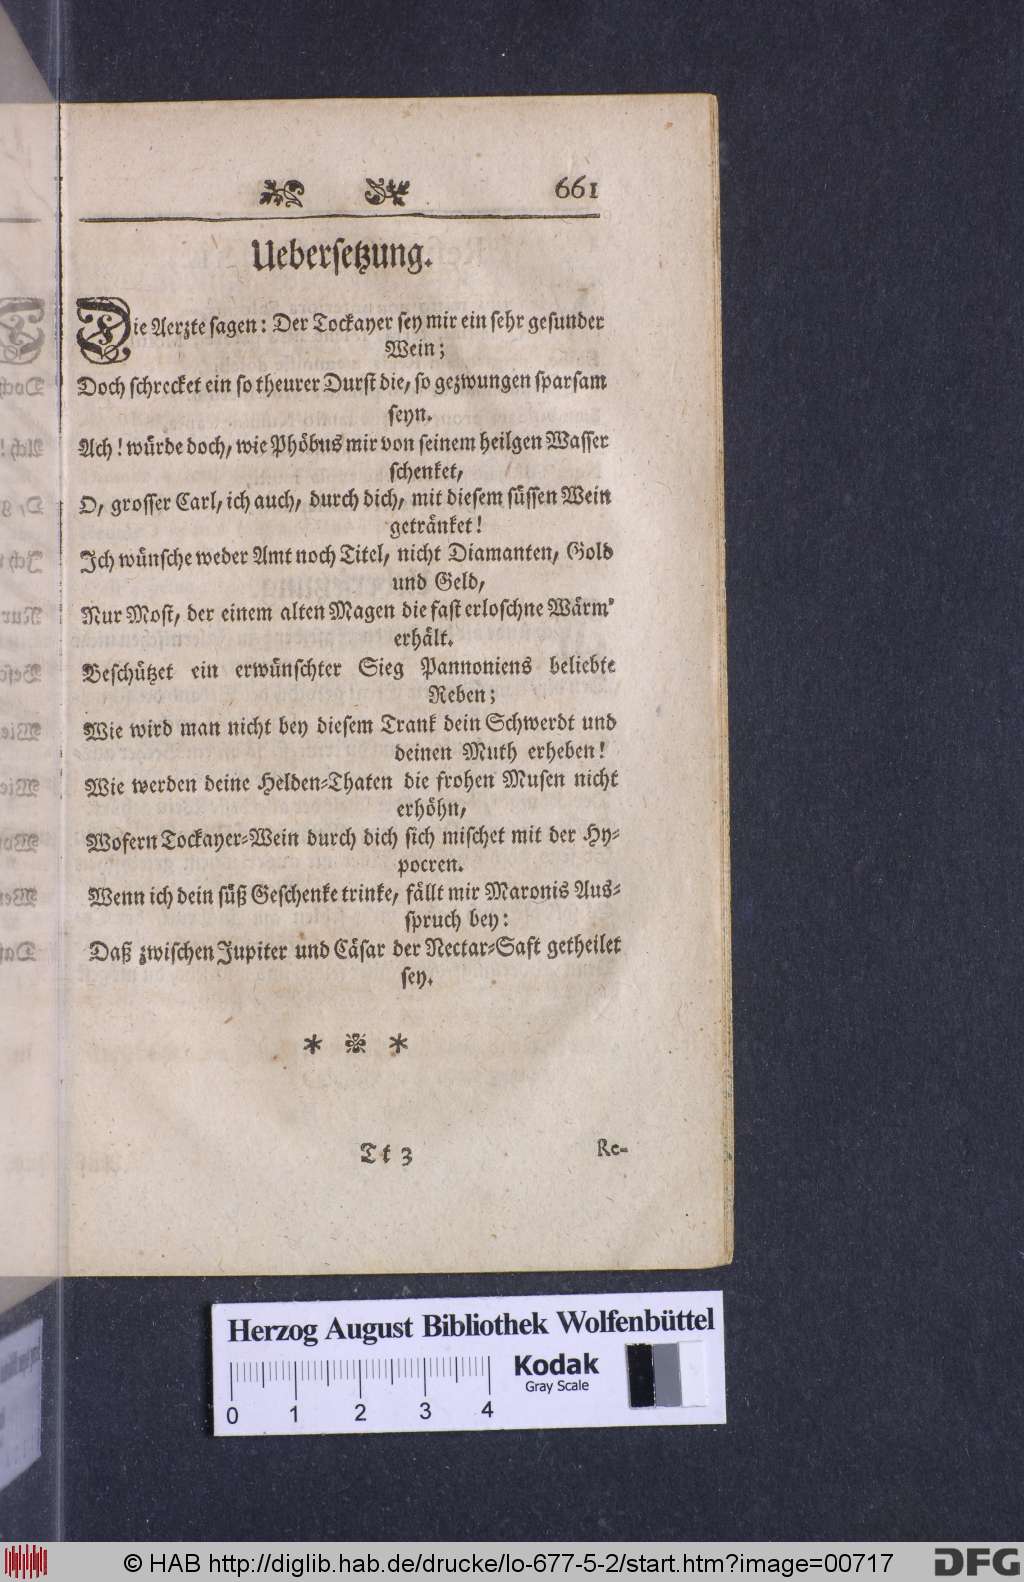 661
Uebersetzung.
Die Aerzte sagen: Der Tockayer sey mir ein sehr gesunder
Wein;
Doch schrecket ein so theurer Durst die, so gezwungen sparsam
seyn.
Ach! würde doch, wie Phöbus mir von seinem heilgen Wasser
schenket,
O, grosser Carl, ich auch, durch dich, mit diesem süssen Wein
getränket!
Ich wünsche weder Amt noch Titel, nicht Diamanten, Gold
und Geld,
Nur Most, der einem alten Magen die fast erloschne Wärm'
erhält.
Beschützet ein erwünschter Sieg Pannoniens beliebte
Reben;
Wie wird man nicht bey diesem Trank dein Schwerdt und
deinen Muth erheben!
Wie werden deine Helden-Thaten die frohen Musen nicht
erhöhn,
Wofern Tockayer-Wein durch dich sich mischet mit der Hy-
pocren.
Wenn ich dein süß Geschenke trinke, fällt mir Maronis Aus-
spruch bey:
Daß zwischen Jupiter und Cäsar der Nectar-Saft getheilet
sey.
* * *
Tt 3
Re-
Herzog August Bibliothek Wolfenbüttel
Kodak
Gray Scale
0 1 2 3 4
© HAB http://diglib.hab.de/drucke/lo-677-5-2/start.htm?image=00717
DFG